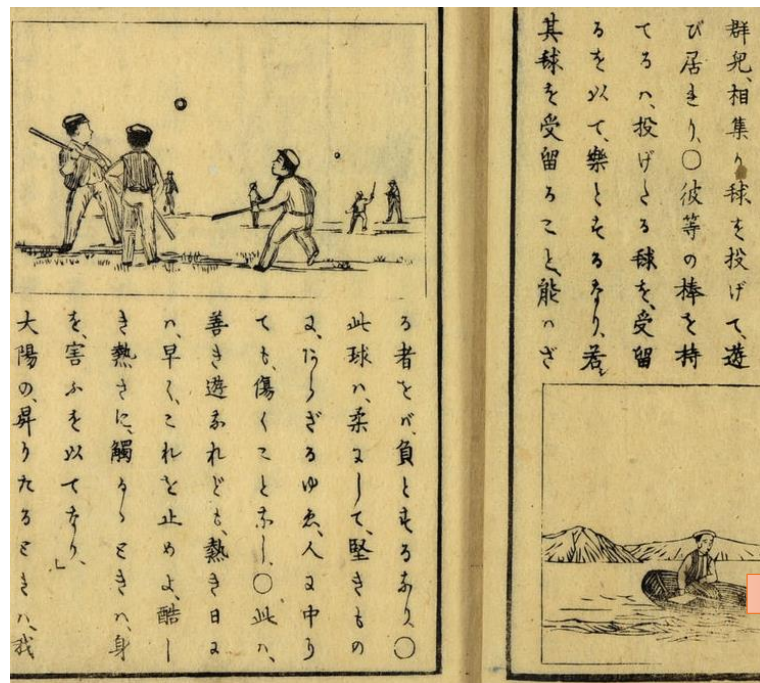 群兒、相集り球を投げて、遊
び居たり、○彼等の棒を持
てるハ、投げたる球を、受留
るを以て、樂とするなり、若シ
其球を受留ること、能ハざ
る者をバ、負とするなり、○
此球ハ、柔にして、堅きもの
に、あらざるゆゑ、人に中り
ても、傷くことなし、○此ハ、
善き遊なれども、熱き日に
ハ、早く、これを止めよ、酷し
き熱さに、觸るゝときハ、身
を、害ふを以てなり、」
大陽の、昇りたるときハ、我